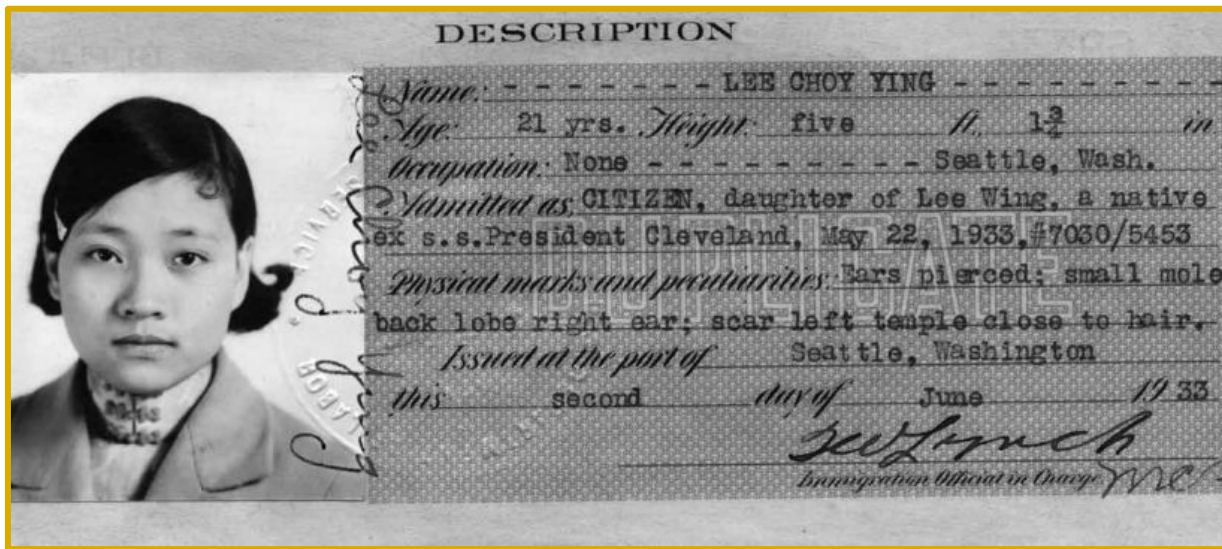 DESCRIPTION
Name: - - - - - - - LEE CHOY YING - - - - - - - - -
Age: 21 yrs. Height: five ft., 1¾ in
Occupation: None - - - - - - - - - Seattle, Wash.
Admitted as CITIZEN, daughter of Lee Wing, a native
ex s.s.President Cleveland, May 22, 1933,#7030/5453
Physical marks and peculiarities: Ears pierced; small mole
back lobe right ear; scar left temple close to hair.
Issued at the port of Seattle, Washington
this second day of June 1933
Immigration Official in Charge
DUPLICATE
Lee Choy Ying
SERVICE
LABOR